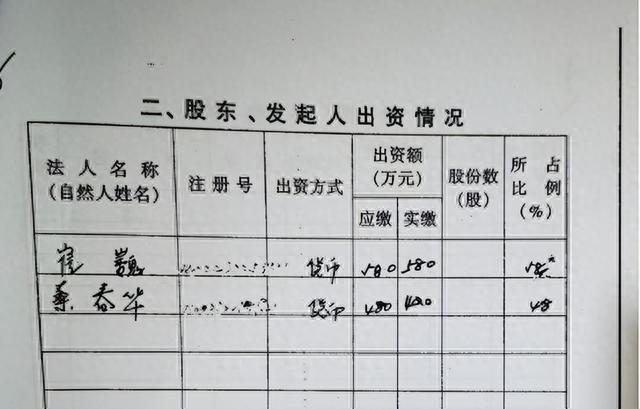 二、股东、发起人出资情况
法人名称 注册号 出资方式 出资额 股份数 所占
(自然人姓名) (万元) (股) 比例
应缴 实缴 (%)
崔巍 货币 580 580
秦春华 货币 480 480 48